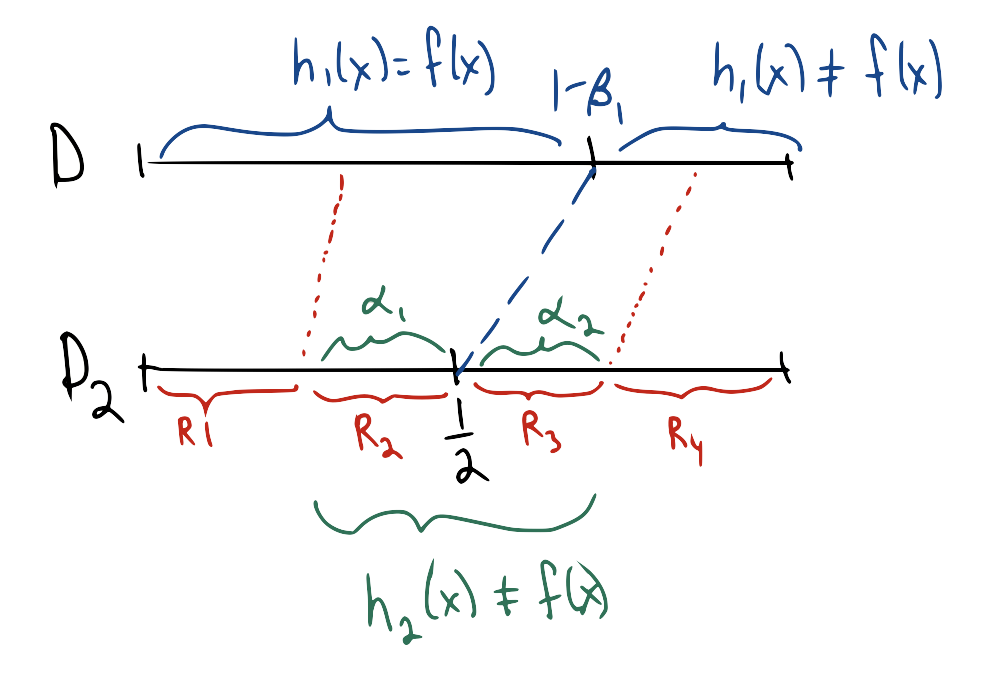 h₁(x) = f(x)
1-β₁
h₁(x) ≠ f(x)
D
α₁
α₂
D₂
R1
R₂
1/2
R₃
R₄
h₂(x) ≠ f(x)